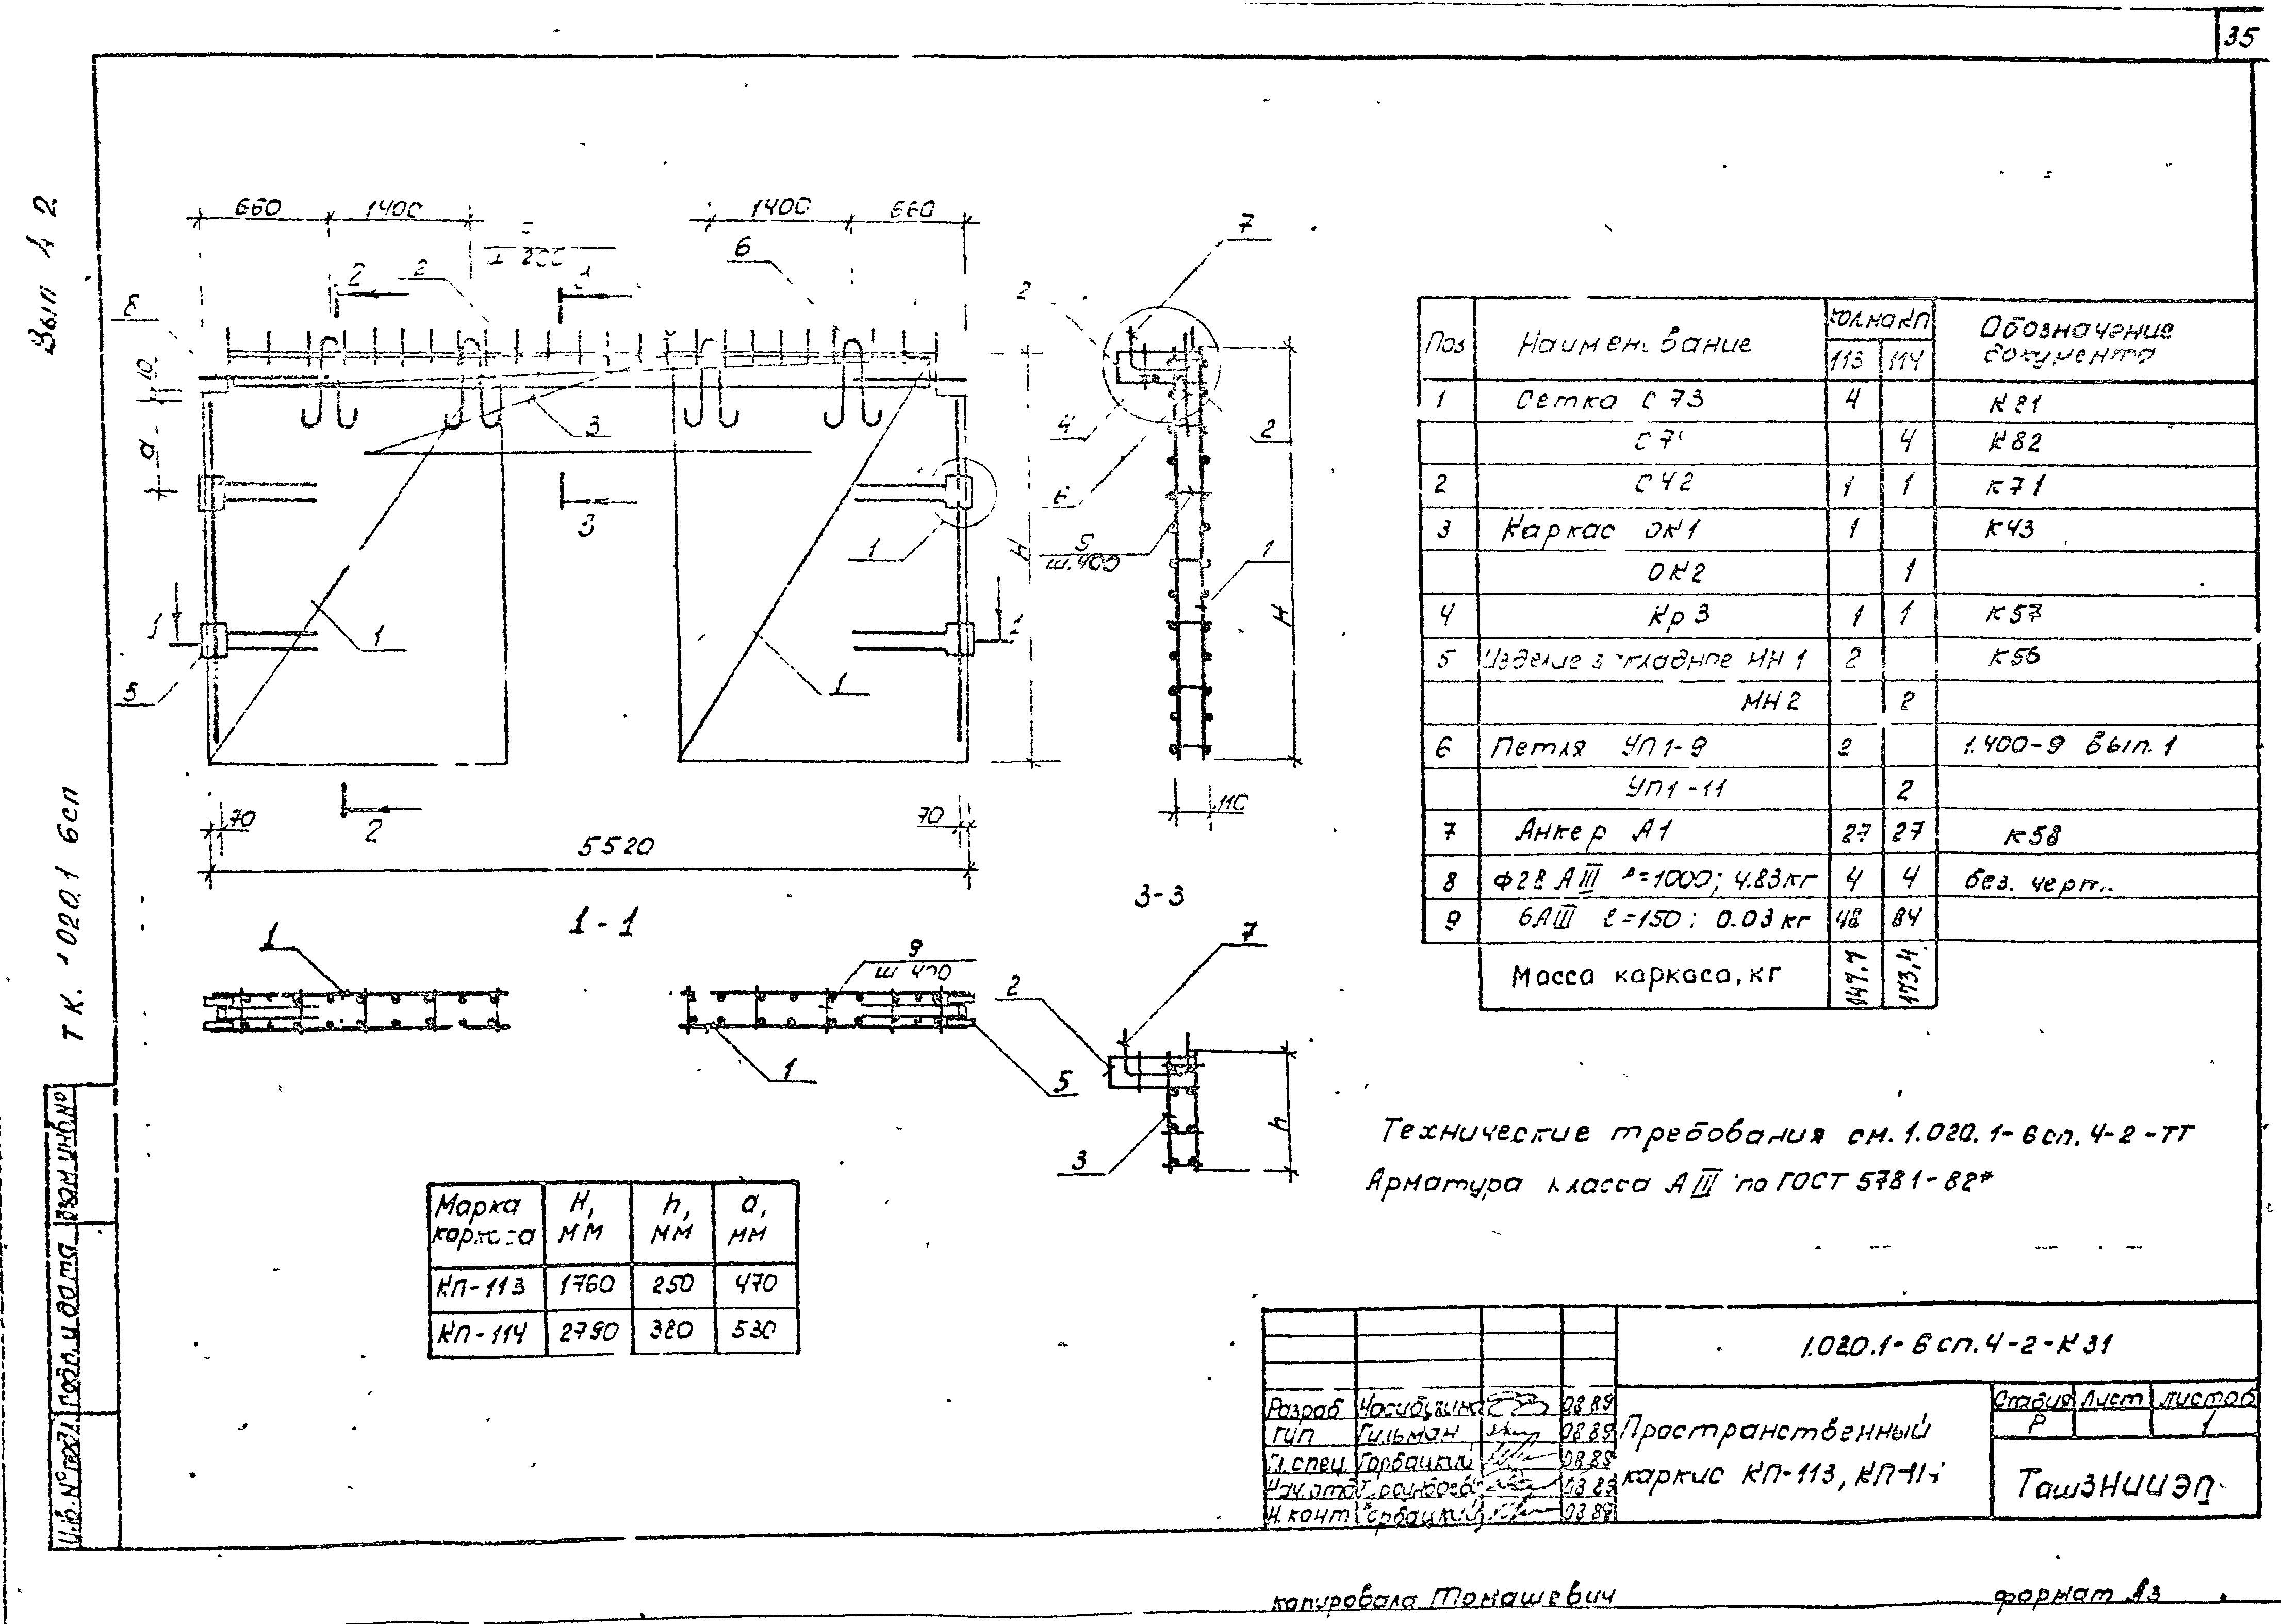 35
Вып 4 2
ТК. 1020.1 6сп
660 1400 1400 660
ш 200
2 2 6
8
10
а
3
3
1
1
1
1
1
5
Н
70 70
2
5520
7
2
4
2
6
9
ш.400
1
Н
110
1-1
1
9
ш 400
1
5
3-3
7
2
3
h
Поз Наименование Кол. на КП Обозначение документа
113 114
1 Сетка С 73 4 К81
С 7 4 К82
2 С42 1 1 К71
3 Каркас ОК1 1 К43
ОК2 1
4 Кр 3 1 1 К57
5 Изделие закладное МН 1 2 К56
МН 2 2
6 Петля УП1-9 2 1.400-9 вып.1
УП1-11 2
7 Анкер А1 27 27 К58
8 Ф28 АIII ℓ=1000; 4.83кг 4 4 без. черт.
9 6АIII ℓ=150; 0.03 кг 48 84
Масса каркаса, кг 147.7 173,4
Технические требования см. 1.020.1-6сп.4-2-ТТ
Арматура класса АIII по ГОСТ 5781-82*
Марка каркаса Н, мм h, мм а, мм
КП-113 1760 250 470
КП-114 2790 380 530
1.020.1-6сп.4-2-К31
Разраб 08 89
ГИП Гильман 08 89
Гл. спец. Горбацкий 08 89
Нач. отд 08 89
Н. конт Горбацкий 08 89
Пространственный
каркас КП-113, КП-114
Стадия Лист Листов
Р 1
ТашЗНИИЭП
Инв. № подл. Подп. и дата Взам инв. №
копировала Томашевич формат А3